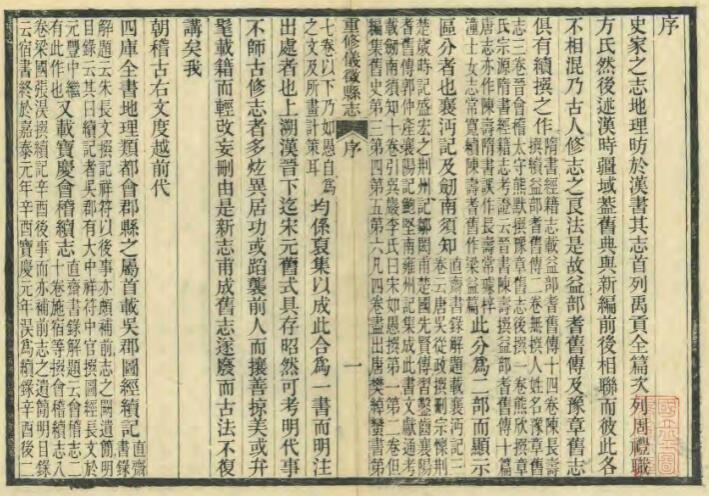 序
史家之志地理昉於漢書其志首列禹貢全篇次列周禮職
方氏然後述漢時疆域蓋舊典與新編前後相聯而彼此各
不相混乃古人修志之良法是故益部耆舊傳及豫章舊志
俱有續撰之作隋書經籍志載益部耆舊傳十四卷陳長壽撰續益部耆舊傳二卷無撰人姓名豫章舊
志三卷晉會稽太守熊默撰豫章舊志後撰一卷熊欣撰章
氏宗源隋書經籍志考證云晉書陳壽撰益部耆舊傳十篇
唐志亦作陳壽隋書誤作長壽常璩梓潼士女志常寬續陳壽耆舊作梁益篇此分為二部而顯示
區分者也襄沔記及劍南須知直齋書錄解題載襄沔記三卷云唐吳從政撰刪宗懍荊
楚歲時記盛宏之荊州記鄒閎甫楚國先賢傳習鑿齒襄陽
耆舊傳郭仲產襄陽記鮑堅南雍州記集成此書文獻通考
載劍南須知十卷引巽巖李氏曰宋如愚撰第一第二卷但
編集舊史第三第四第五第六凡四卷盡出唐樊綽蠻書第
重修儀徵縣志
序
一
七卷以下乃如愚自為之文及所畫計策耳均係裒集以成此合為一書而明注
出處者也上溯漢晉下迄宋元舊式具存昭然可考明代事
不師古修志者多炫異居功或蹈襲前人而攘善掠美或弁
髦載籍而輕改妄刪由是新志甫成舊志遂廢而古法不復
講矣我
朝稽古右文度越前代
四庫全書地理類都會郡縣之屬首載吳郡圖經續記直齋書錄
解題云朱長文撰記祥符以後事亦頗補前志之闕遺簡明
目錄云其曰續記者吳郡有大中祥符中官撰圖經長文於
元豐中繼有此作也又載寶慶會稽續志直齋書錄解題云會稽志二十卷施宿等撰會稽續志八
卷梁國張淏撰續記辛酉後事而亦補前志之遺簡明目錄
云宿書終於嘉泰元年辛酉寶慶元年淏為續錄辛酉後二